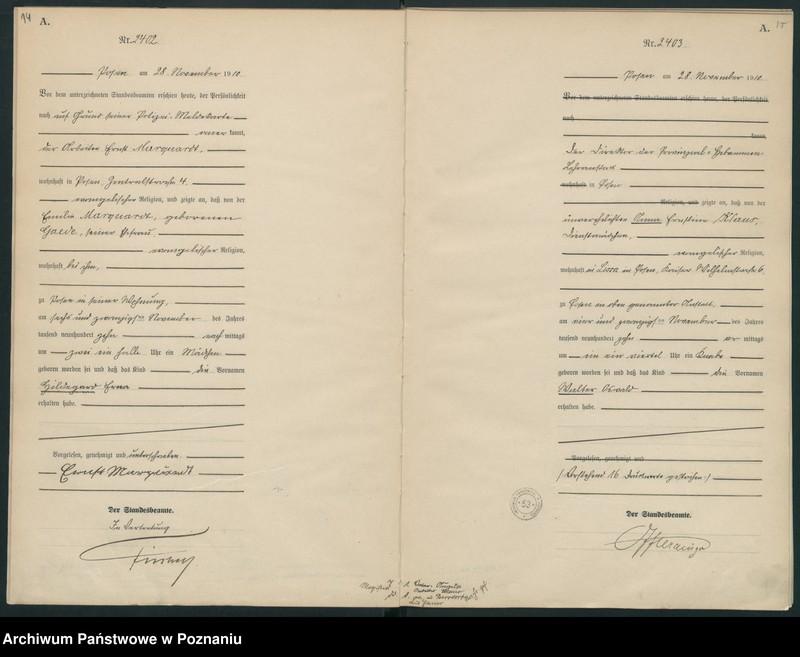 14
A.
Nr. 2402
Posen am 28. November 1910.
Vor dem unterzeichneten Standesbeamten erschien heute, der Persönlichkeit
nach auf Grund seiner Polizei-Meldekarte
kannt,
der Arbeiter Ernst Marquardt,
wohnhaft in Posen, Zentralstraße 4,
evangelischer Religion, und zeigte an, daß von der
Emilie Marquardt, geborenen
Gaede, seiner Ehefrau,
evangelischer Religion,
wohnhaft bei ihm,
zu Posen in seiner Wohnung,
am sechs und zwanzigsten November des Jahres
tausend neunhundert zehn nachmittags
um zwei ein halb Uhr ein Mädchen
geboren worden sei und daß das Kind die Vornamen
Hildegard Erna
erhalten habe.
Vorgelesen, genehmigt und unterschrieben
Ernst Marquardt
Der Standesbeamte.
In Vertretung
15
A.
Nr. 2403
Posen am 28. November 1910.
Vor dem unterzeichneten Standesbeamten erschien heute, der Persönlichkeit
nach
kannt,
Der Direktor der Provinzial-Hebammen-
Lehranstalt
wohnhaft in Posen
Religion, und zeigte an, daß von der
unverehelichten Anna Ernstine Klaus,
Dienstmädchen,
evangelischer Religion,
wohnhaft in Lissa in Posen, Kaiser Wilhelmstraße 6,
zu Posen in oben genannter Anstalt,
am vier und zwanzigsten November des Jahres
tausend neunhundert zehn vormittags
um ein ein viertel Uhr ein Knabe
geboren worden sei und daß das Kind die Vornamen
Walter Oswald
erhalten habe.
Vorgelesen, genehmigt und
(Vorstehend 16 Druckworte gestrichen.)
Der Standesbeamte.
53
Archiwum Państwowe w Poznaniu